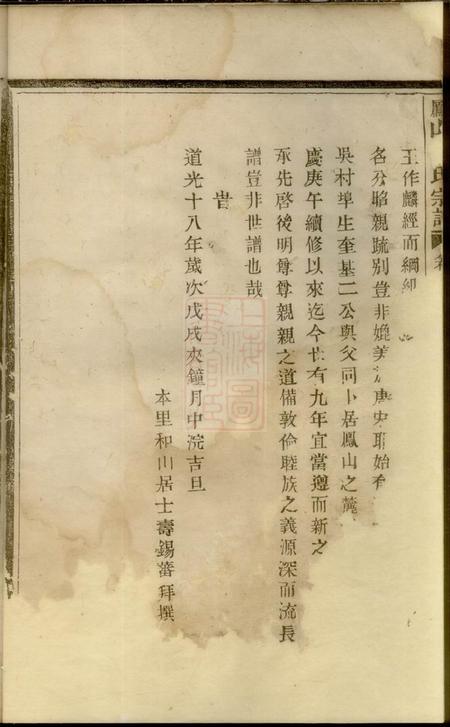 鳳山 氏宗譜 卷
王作麟經而綱
名分昭親疏別豈非媲美 唐史耶始有
吳村埠生奎基二公與父同卜居鳳山之麓
慶庚午續修以來迄今廿有九年宜當遵而新之
承先啓後明尊尊親親之道備敦倫睦族之義源深而流長
譜豈非世譜也哉
旹
道光十八年歲次戊戌夾鐘月中浣吉旦
本里和川居士壽錫蕃拜撰
上海圖書館藏